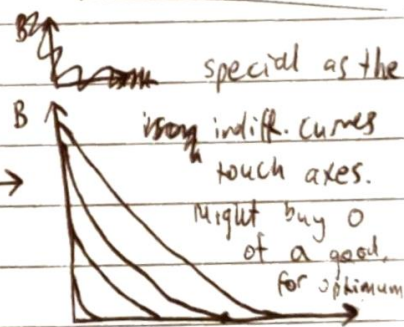 special as the
B
indiff. curves
touch axes.
Might buy 0
of a good,
for optimum